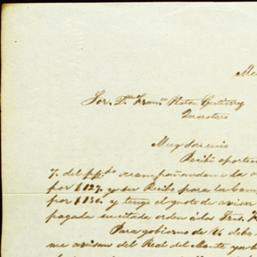 Me
Sor. Dn. Franco. Platon Gutierrez
Queretaro
Muy Sor. mio
Recibi oportun
7. del ppdo. acompañandome la o
por $127. y un Recibo para la Com
por $130. y tengo el gusto de avisar
pagada su citada orden á los Sres. F
Para gobierno de V. debo
me avisan del Real del Monte, qe. h